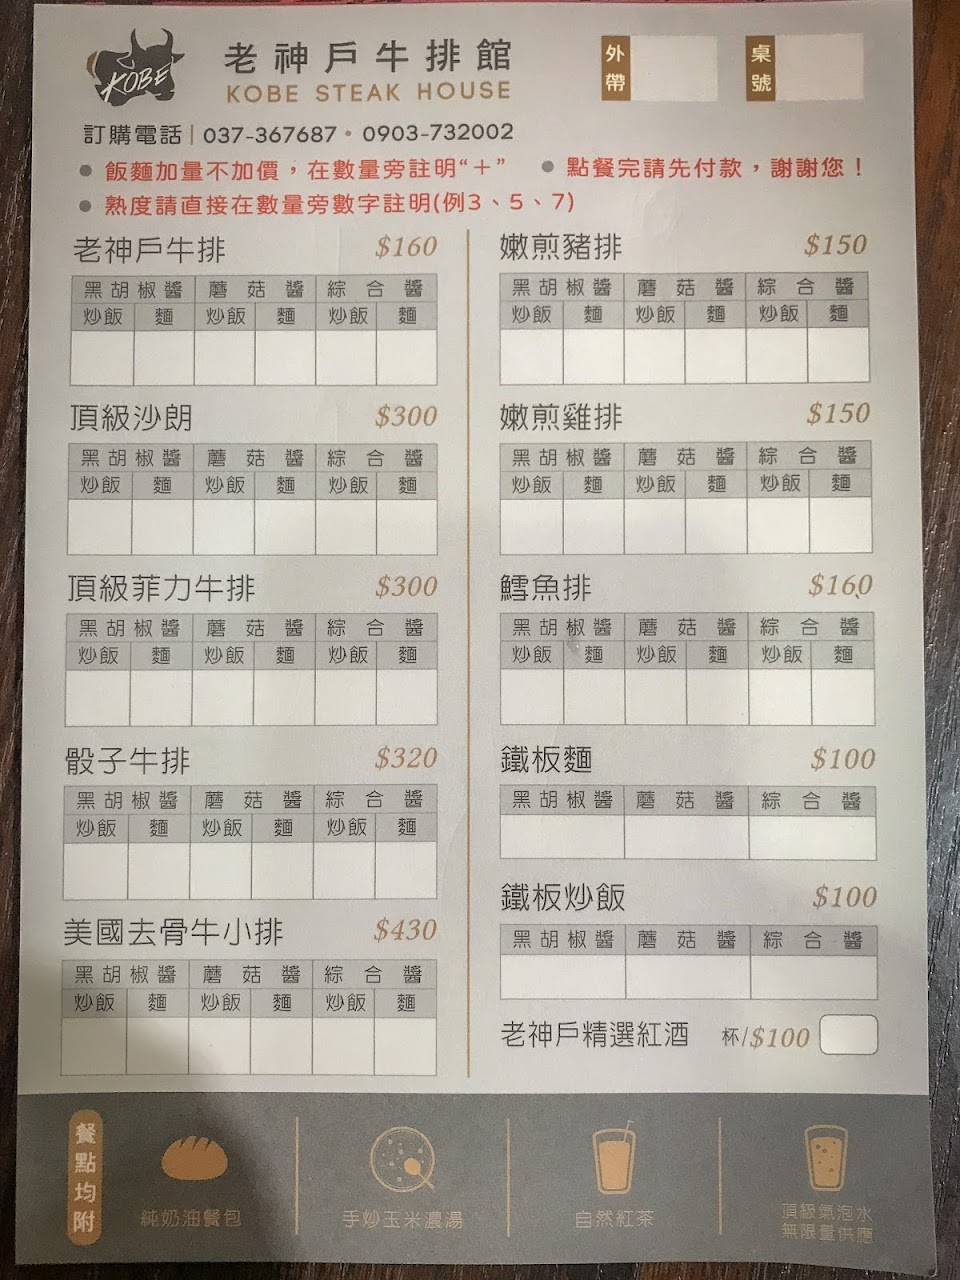 KOBE
老神戶牛排館
KOBE STEAK HOUSE
外帶
桌號
訂購電話|037-367687•0903-732002
● 飯麵加量不加價，在數量旁註明“＋” ● 點餐完請先付款，謝謝您！
● 熟度請直接在數量旁數字註明(例3、5、7)
老神戶牛排 $160
黑胡椒醬 蘑菇醬 綜合醬
炒飯 麵 炒飯 麵 炒飯 麵
頂級沙朗 $300
黑胡椒醬 蘑菇醬 綜合醬
炒飯 麵 炒飯 麵 炒飯 麵
頂級菲力牛排 $300
黑胡椒醬 蘑菇醬 綜合醬
炒飯 麵 炒飯 麵 炒飯 麵
骰子牛排 $320
黑胡椒醬 蘑菇醬 綜合醬
炒飯 麵 炒飯 麵 炒飯 麵
美國去骨牛小排 $430
黑胡椒醬 蘑菇醬 綜合醬
炒飯 麵 炒飯 麵 炒飯 麵
嫩煎豬排 $150
黑胡椒醬 蘑菇醬 綜合醬
炒飯 麵 炒飯 麵 炒飯 麵
嫩煎雞排 $150
黑胡椒醬 蘑菇醬 綜合醬
炒飯 麵 炒飯 麵 炒飯 麵
鱈魚排 $160
黑胡椒醬 蘑菇醬 綜合醬
炒飯 麵 炒飯 麵 炒飯 麵
鐵板麵 $100
黑胡椒醬 蘑菇醬 綜合醬
鐵板炒飯 $100
黑胡椒醬 蘑菇醬 綜合醬
老神戶精選紅酒 杯/$100
餐點均附
純奶油餐包
手炒玉米濃湯
自然紅茶
頂級氣泡水
無限量供應